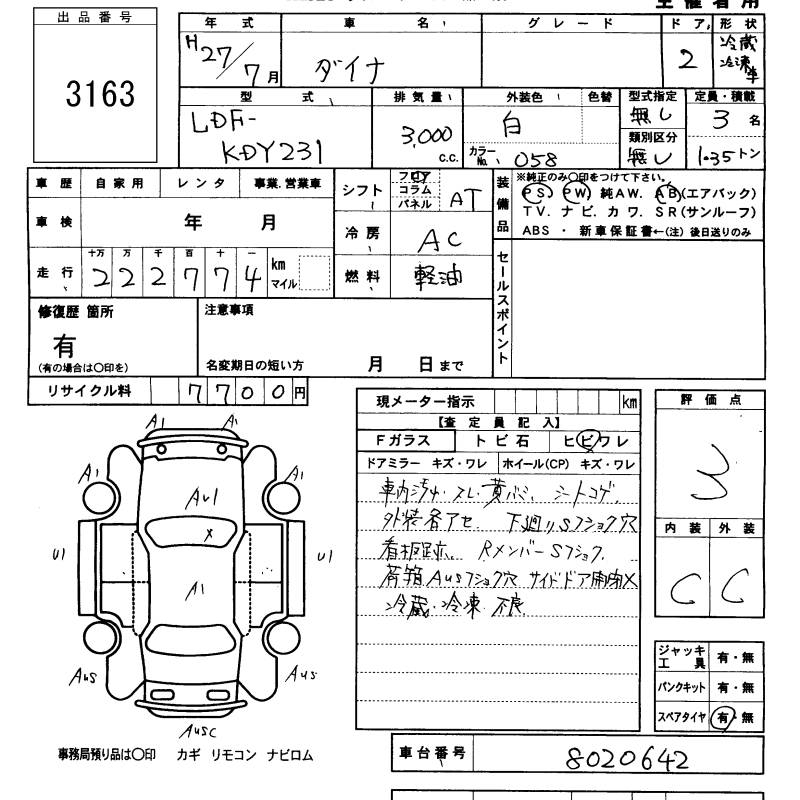 主催者用
出品番号
3163
年式 車名 グレード ドア 形状
H27/7月 ダイナ 2 冷蔵冷凍車
型式 排気量 外装色 色替 型式指定 定員・積載
LDF-KDY231 3,000 c.c. 白 無し 3名
カラーNo. 058 類別区分 無し 1.35トン
車歴 自家用 レンタ 事業.営業車
シフト フロア コラム パネル AT
装備品 ※純正のみ○印をつけて下さい。
PS. PW. 純AW. AB(エアバック)
TV. ナビ. カワ. SR(サンルーフ)
ABS ・ 新車保証書←(注) 後日送りのみ
車検 年 月
冷房 AC
走行 十万 万 千 百 十 一
222774 km マイル
燃料 軽油
セールスポイント
修復歴 箇所 注意事項
有
(有の場合は○印を) 名変期日の短い方 月 日まで
リサイクル料 7700円
現メーター指示 km
【査定員記入】
Fガラス トビ石 ヒビワレ
ドアミラー キズ・ワレ ホイール(CP) キズ・ワレ
車内汚れ・スレ・黄バミ、シートコゲ、
外装各アセ 下廻りSフショク穴
看板跡、RメンバーSフショク、
荷箱AusフショクX穴 サイドドア開閉X
冷蔵・冷凍 不良
評価点
3
内装 外装
C C
ジャッキ工具 有・無
パンクキット 有・無
スペアタイヤ 有・無
A1 A1
A1 A1
AU1
X
U1 A1 U1
Aus Aus
Ausc
事務局預り品は○印 カギ リモコン ナビロム
車台番号 8020642